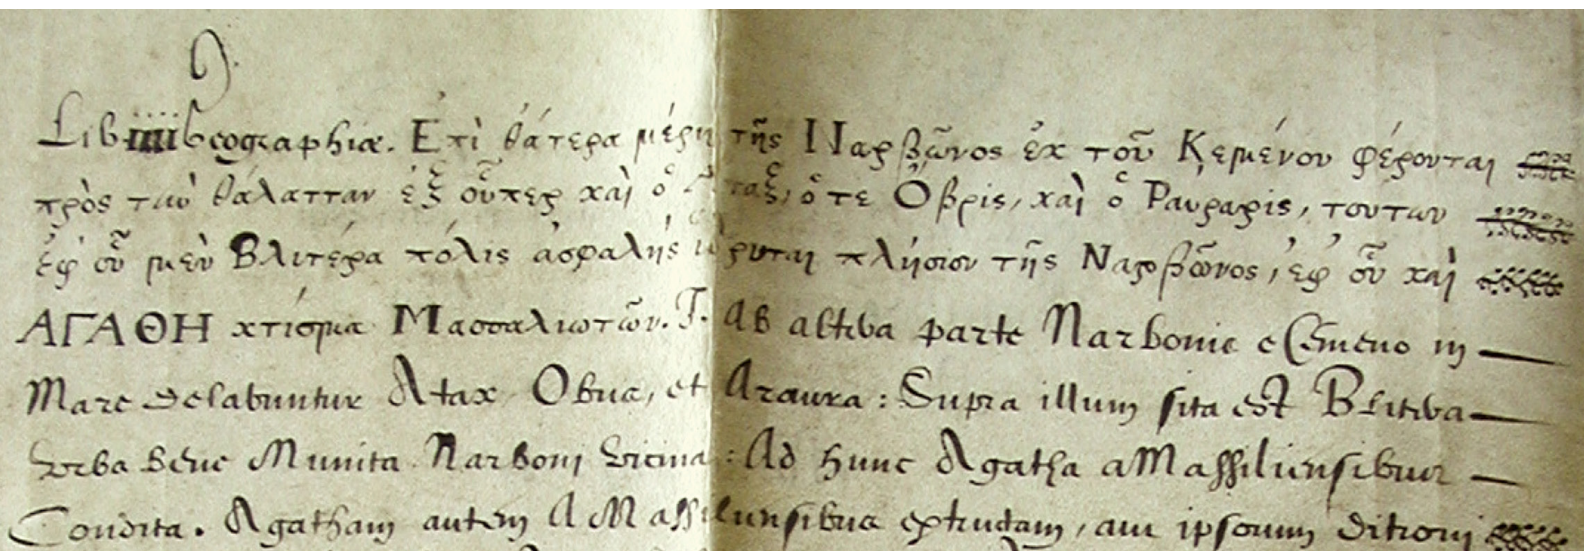 Lib iiii Geographiæ. Ἐπὶ θάτερα μέρη τῆς Ναρβῶνος ἐκ τοῦ Κεμένου φέρονται
πρὸς τὴν θάλατταν ἐξ οὗπερ καὶ ὁ Ἄταξ, ὅ τε Ὄβρις, καὶ ὁ Ῥαύραρις, τούτων
ἐφ οὗ μὲν Βλιτέρα πόλις ἀσφαλὴς ἵδρυται πλήσιον τῆς Ναρβῶνος, ἐφ οὗ καὶ
ΑΓΑΘΗ κτίσμα Μασσαλιωτῶν. J. Ab altera parte Narbonis e Cemeno in
Mare delabuntur Atax Obris, et Araura: Supra illum sita est Blitera
Vrbs bene Munita Narboni vicina: Ad hunc Agatha a Massiliensibus
Condita. Agatham autem A Massiliensibus extructam, aut ipsorum ditioni